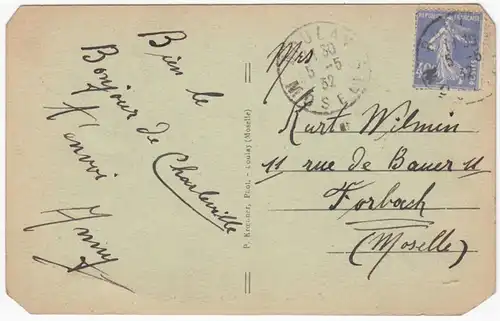 Bien le
Bonjour de
Charleville
P. Krommer, Phot. - Boulay (Moselle)
BOULAY
30
5-5
32
MOSELLE
REPUBLIQUE FRANCAISE
40
Mrs
Kurt Wilmin
11 rue de Bauer 11
Forbach
(Moselle)